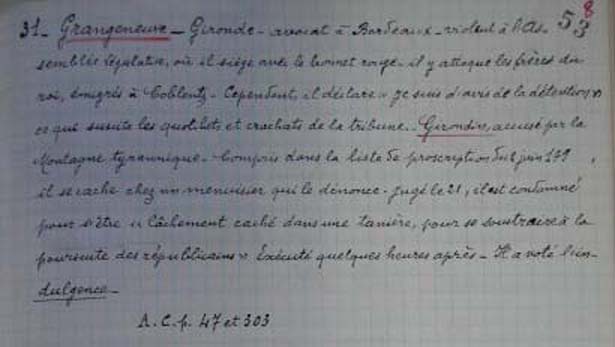 31_ Grangeneuve_ Gironde_ avocat à Bordeaux_ violent à l'As- 53 8
semblée législative, où il siège avec le bonnet rouge_ il y attaque les frères du
roi, émigrés à Coblentz_ Cependant, il déclare « Je suis d'avis de la détention »
ce qui suscite les quolibets et crachats de la tribune_ Girondin, accusé par la
Montagne tyrannique_ Compris dans la liste de proscription du 2 juin
il se cache chez un menuisier qui le dénonce. Jugé le 21, il est condamné
pour s'être « lâchement caché dans une tanière, pour se soustraire à la
poursuite des républicains » Exécuté quelques heures après_ Il a voté l'in-
dulgence_
A.C.p. 47 et 303